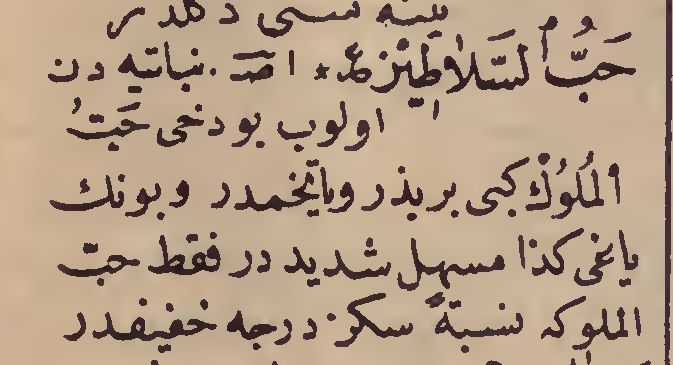 يينه سمى دكلدر
حَبُّ السَّلَاطِين ع * ا ص . نباتيه دن
اولوب بودخى حَبُّ
المُلُوكْ كبى بربذر وياتخمدر وبونك
ياغى كذا مسهل شديد در فقط حبّ
الملوكه نسبةً سكز درجه خفيفدر